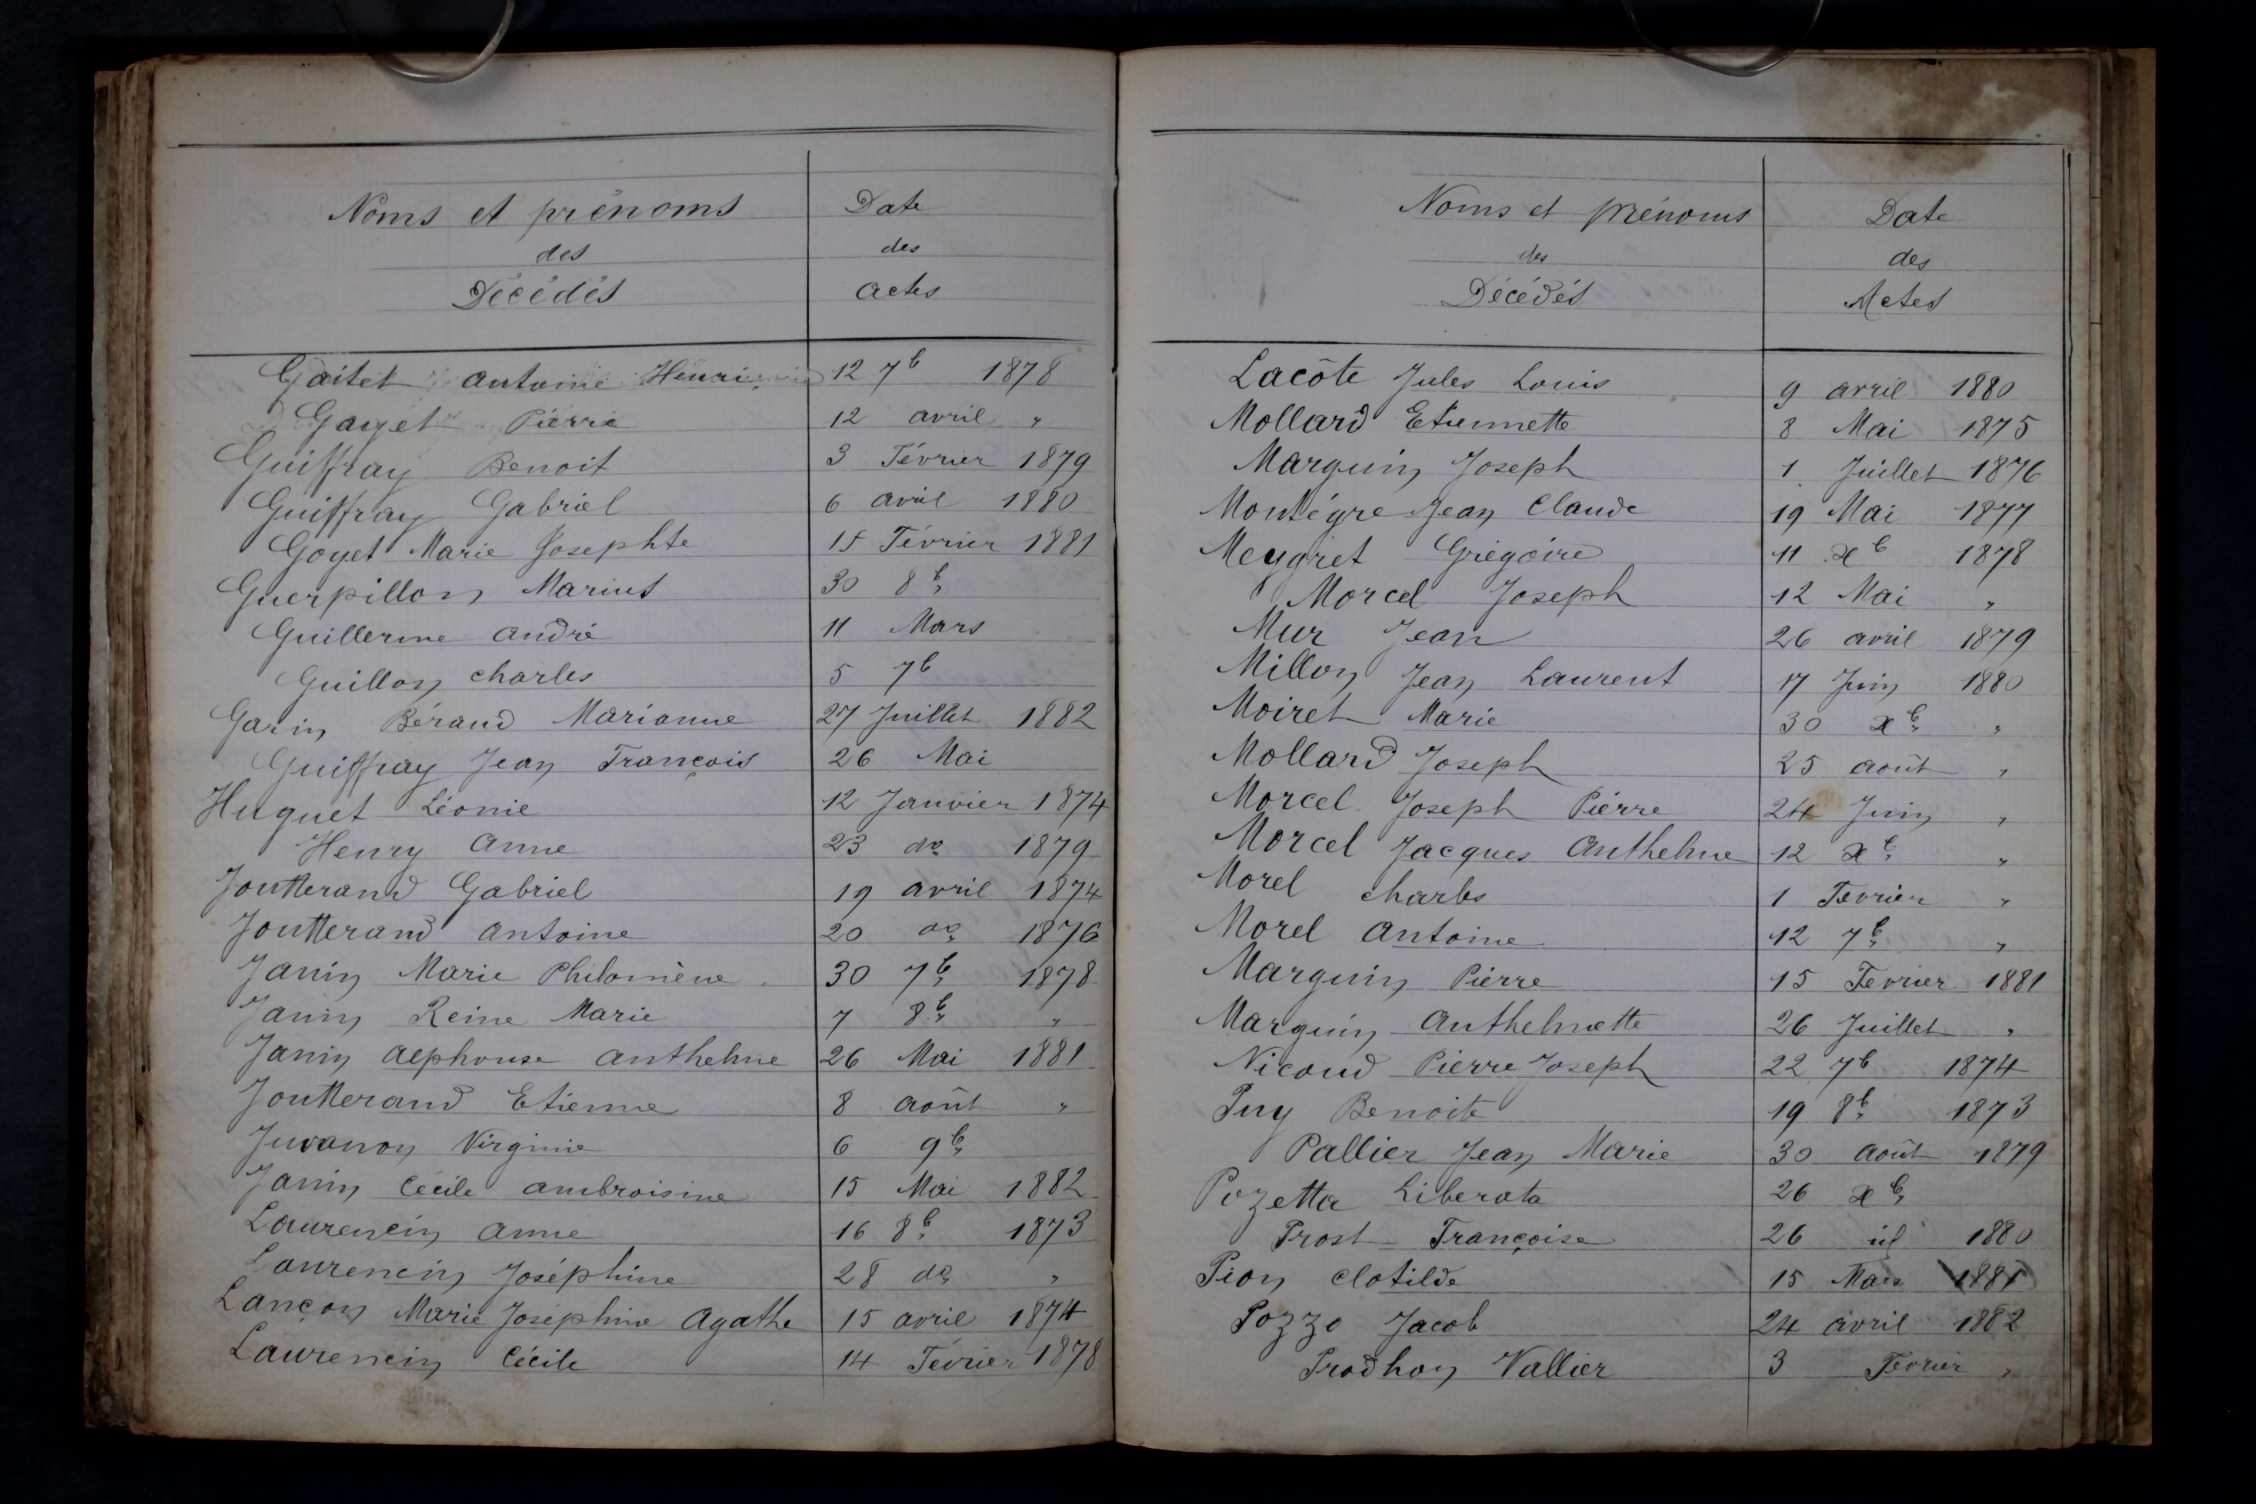 Noms et prénoms Date
des des
Décédés actes
Gaitet antoine Henri 12 7b 1878
Gayet Pierre 12 avril "
Guiffray Benoit 3 Février 1879
Guiffray Gabriel 6 avril 1880
Goyet Marie Josephte 15 Février 1881
Guerpillon Marius 30 8b
Guillerme andré 11 Mars
Guillon charles 5 7b
Garin Béraud Marianne 27 Juillet 1882
Guiffray Jean François 26 Mai
Huguet Léonie 12 Janvier 1874
Henry anne 23 do 1879
Joutterand Gabriel 19 avril 1874
Joutterand antoine 20 do 1876
Janin Marie Philomène 30 7b 1878
Janin Reine Marie 7 8b "
Janin alphonse anthelme 26 Mai 1881
Joutterand Etienne 8 août "
Juvanon Virginie 6 9b
Janin Cécile ambroisine 15 Mai 1882
Laurencin anne 16 8b 1873
Laurencin Joséphine 28 do "
Lançon Marie Joséphine Agathe 15 avril 1874
Laurencin Cécile 14 Février 1878
Noms et prénoms Date
des des
Décédés Actes
Lacôte Jules Louis 9 avril 1880
Mollard Etiennette 8 Mai 1875
Marguin Joseph 1 Juillet 1876
Montégre Jean Claude 19 Mai 1877
Meygret Grégoire 11 xb 1878
Morcel Joseph 12 Mai "
Mur Jean 26 avril 1879
Millon Jean Laurent 17 Juin 1880
Moiret Marie 30 xb "
Mollard Joseph 25 août "
Morcel Joseph Pierre 24 Juin "
Morcel Jacques Anthelme 12 xb "
Morel charles 1 Fevrier "
Morel Antoine 12 7b "
Marguin Pierre 15 Fevrier 1881
Marguin Anthelmette 26 Juillet "
Nicoud Pierre Joseph 22 7b 1874
Puy Benoite 19 8b 1873
Pallier Jean Marie 30 août 1879
Pozetta Liberata 26 xb
Prost Françoise 26 id 1880
Pion clotilde 15 Mars 1881
Pozzo Jacob 24 avril 1882
Prodhon Vallier 3 Fevrier "